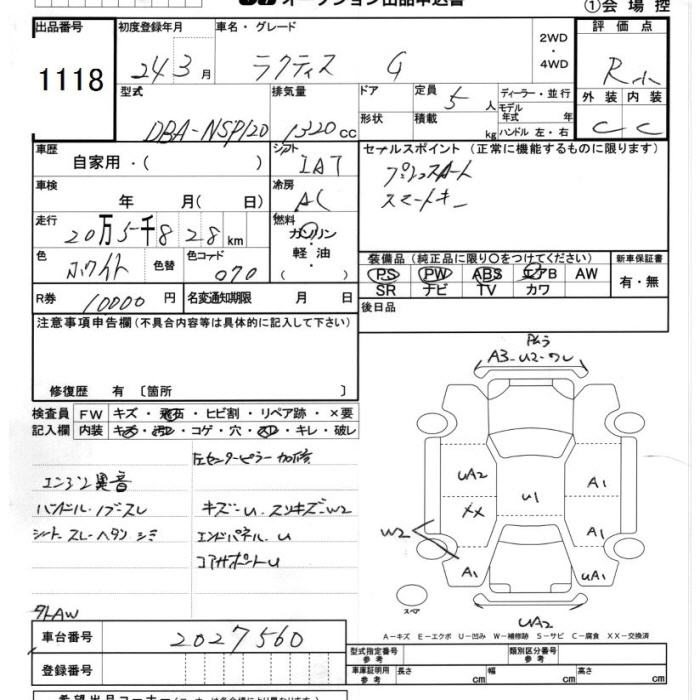 オークション出品申込書
①会場控
出品番号 初度登録年月 車名・グレード 評価点
1118 24 3 月 ラクティス G 2WD・4WD R
型式 排気量 ドア 定員 ディーラー・並行 外装 内装
DBA-NSP120 1320 cc 5 人 モデル年式 年 C C
形状 積載 kg ハンドル 左・右
車歴 シフト セールスポイント(正常に機能するものに限ります)
自家用・( ) IAT プッシュスタート
車検 冷房 スマートキー
年 月( 日) AC
走行 燃料
20万5千828km ガソリン
軽油
・( )
色 色替 色コード 装備品(純正品に限り○をつけてください) 新車保証書
ホワイト 070 PS PW ABS エアB AW 有・無
SR ナビ TV カワ
R券 10000 円 名変通知期限 月 日 後日品
注意事項申告欄(不具合内容等は具体的に記入して下さい)
修復歴 有 〔箇所 〕
A3-U2-ワレ
検査員 FW キズ・飛石・ヒビ割・リペア跡・×要
記入欄 内装 キズ・汚レ・コゲ・穴・スレ・キレ・破レ
左センターピラー加修
エンジン異音
ハンドル・ノブスレ キズ=U スリキズ=W2
シートスレ・ヘタリ シミ エンドパネルU
コアサポートU
外AW
UA2 U1 A1
XX A1
W2
A1 UA1
スペア
UA2
A-キズ E-エクボ U-凹み W-補修跡 S-サビ C-腐食 XX-交換済
車台番号 2027560
登録番号
型式指定番号 参考 類別区分番号 参考
車庫証明用 参考 長さ cm 幅 cm 高さ cm